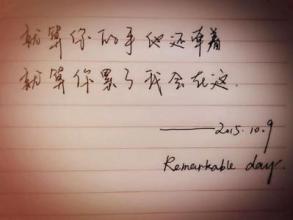 就算你的手他还牵着
就算你累了我会在这.
——2015.10.9
Remarkable day.